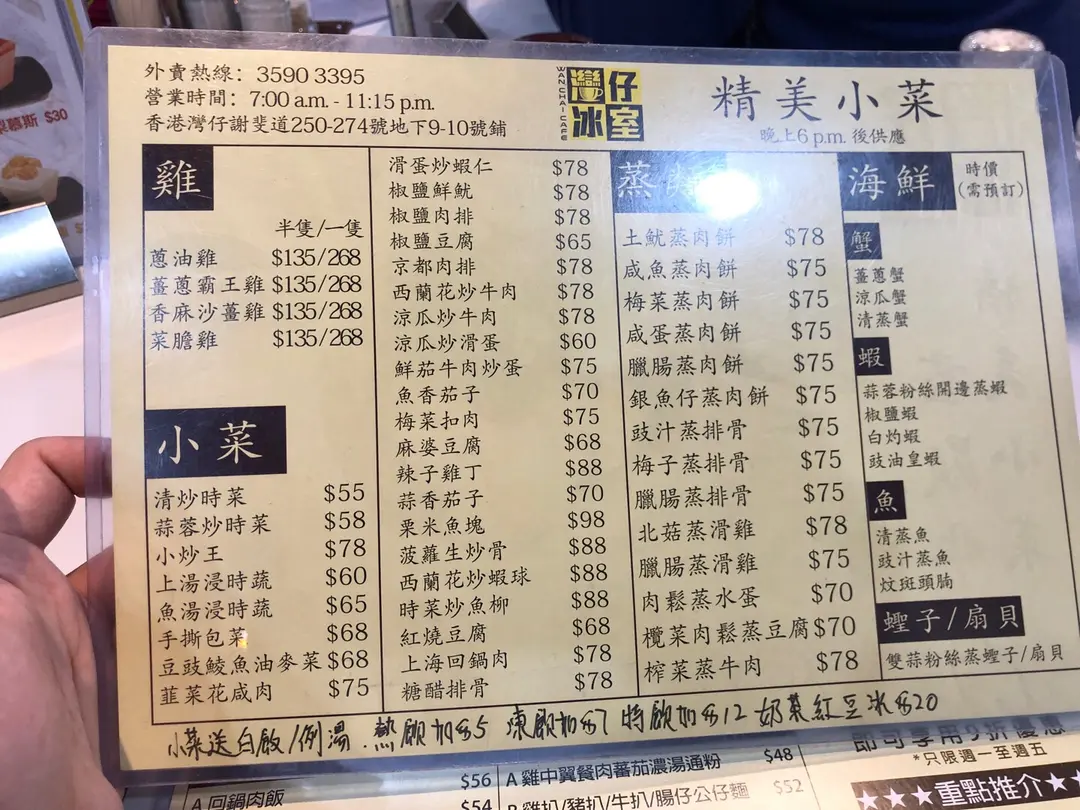 外賣熱線：3590 3395
營業時間：7:00 a.m. - 11:15 p.m.
香港灣仔謝斐道250-274號地下9-10號鋪
WAN CHAI CAFE
灣仔
冰室
精美小菜
晚上6 p.m. 後供應
雞
半隻/一隻
蔥油雞 $135/268
薑蔥霸王雞 $135/268
香麻沙薑雞 $135/268
菜膽雞 $135/268
小菜
清炒時菜 $55
蒜蓉炒時菜 $58
小炒王 $78
上湯浸時蔬 $60
魚湯浸時蔬 $65
手撕包菜 $68
豆豉鯪魚油麥菜 $68
韮菜花咸肉 $75
滑蛋炒蝦仁 $78
椒鹽鮮魷 $78
椒鹽肉排 $78
椒鹽豆腐 $65
京都肉排 $78
西蘭花炒牛肉 $78
涼瓜炒牛肉 $78
涼瓜炒滑蛋 $60
鮮茄牛肉炒蛋 $75
魚香茄子 $70
梅菜扣肉 $75
麻婆豆腐 $68
辣子雞丁 $88
蒜香茄子 $70
栗米魚塊 $98
菠蘿生炒骨 $88
西蘭花炒蝦球 $88
時菜炒魚柳 $88
紅燒豆腐 $68
上海回鍋肉 $78
糖醋排骨 $78
蒸
土魷蒸肉餅 $78
咸魚蒸肉餅 $75
梅菜蒸肉餅 $75
咸蛋蒸肉餅 $75
臘腸蒸肉餅 $75
銀魚仔蒸肉餅 $75
豉汁蒸排骨 $75
梅子蒸排骨 $75
臘腸蒸排骨 $75
北菇蒸滑雞 $78
臘腸蒸滑雞 $75
肉鬆蒸水蛋 $70
欖菜肉鬆蒸豆腐 $70
榨菜蒸牛肉 $78
海鮮 時價
(需預訂)
蟹
薑蔥蟹
涼瓜蟹
清蒸蟹
蝦
蒜蓉粉絲開邊蒸蝦
椒鹽蝦
白灼蝦
豉油皇蝦
魚
清蒸魚
豉汁蒸魚
炆斑頭腩
蟶子/扇貝
雙蒜粉絲蒸蟶子/扇貝
小菜送白飯/例湯．熱飲加$5 凍飲加$7 特飲加$12 奶茶紅豆冰$20
$56
A 回鍋肉飯 $54
A 雞中翼餐肉蕃茄濃湯通粉 $48
B 雞扒/豬扒/牛扒/腸仔公仔麵 $52
即可享用9折優惠
*只限週一至週五
★★★重點推介★
慕斯 $30